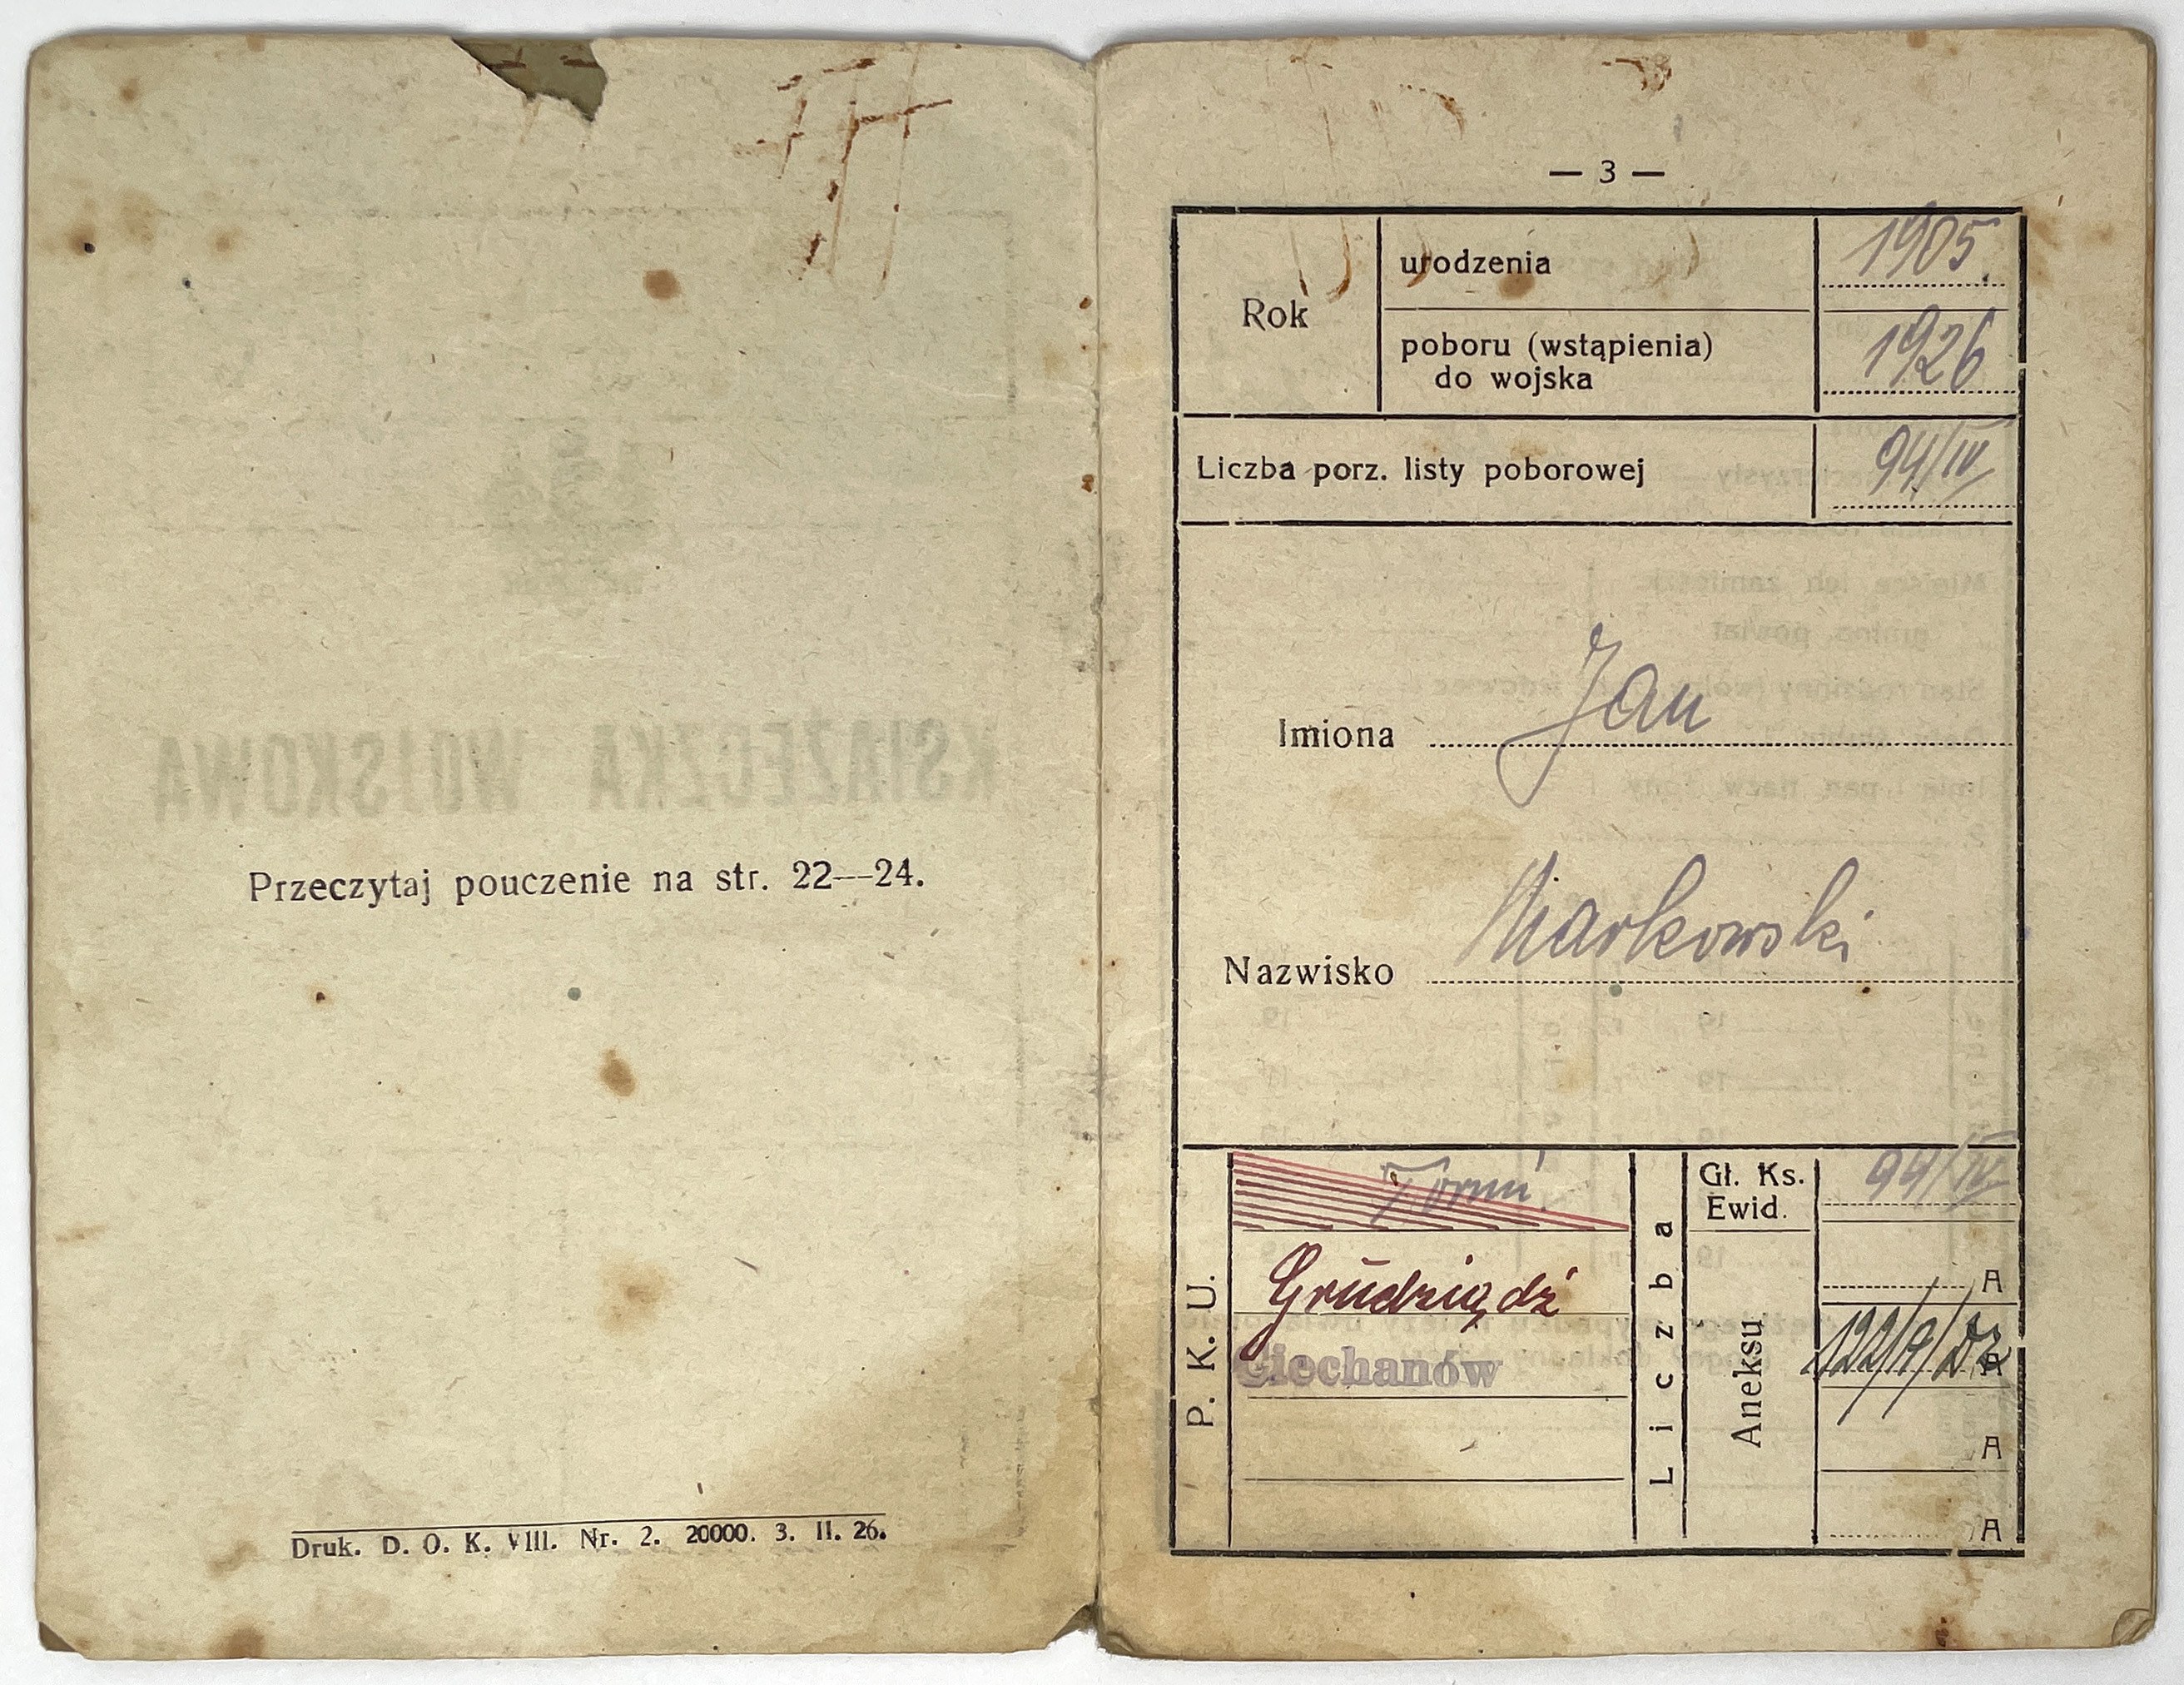 KSIĄŻECZKA WOJSKOWA
Przeczytaj pouczenie na str. 22—24.
Druk. D. O. K. VIII. Nr. 2. 20000. 3. II. 26.
— 3 —
Rok
urodzenia 1905.
poboru (wstąpienia)
do wojska 1926
Liczba porz. listy poborowej 94/IV
Imiona Jan
Nazwisko Markowski
P. K. U.
Toruń
Grudziądź
Ciechanów
Liczba
Gł. Ks.
Ewid. 94/IV
Aneksu
A
122/9/ A
A
A